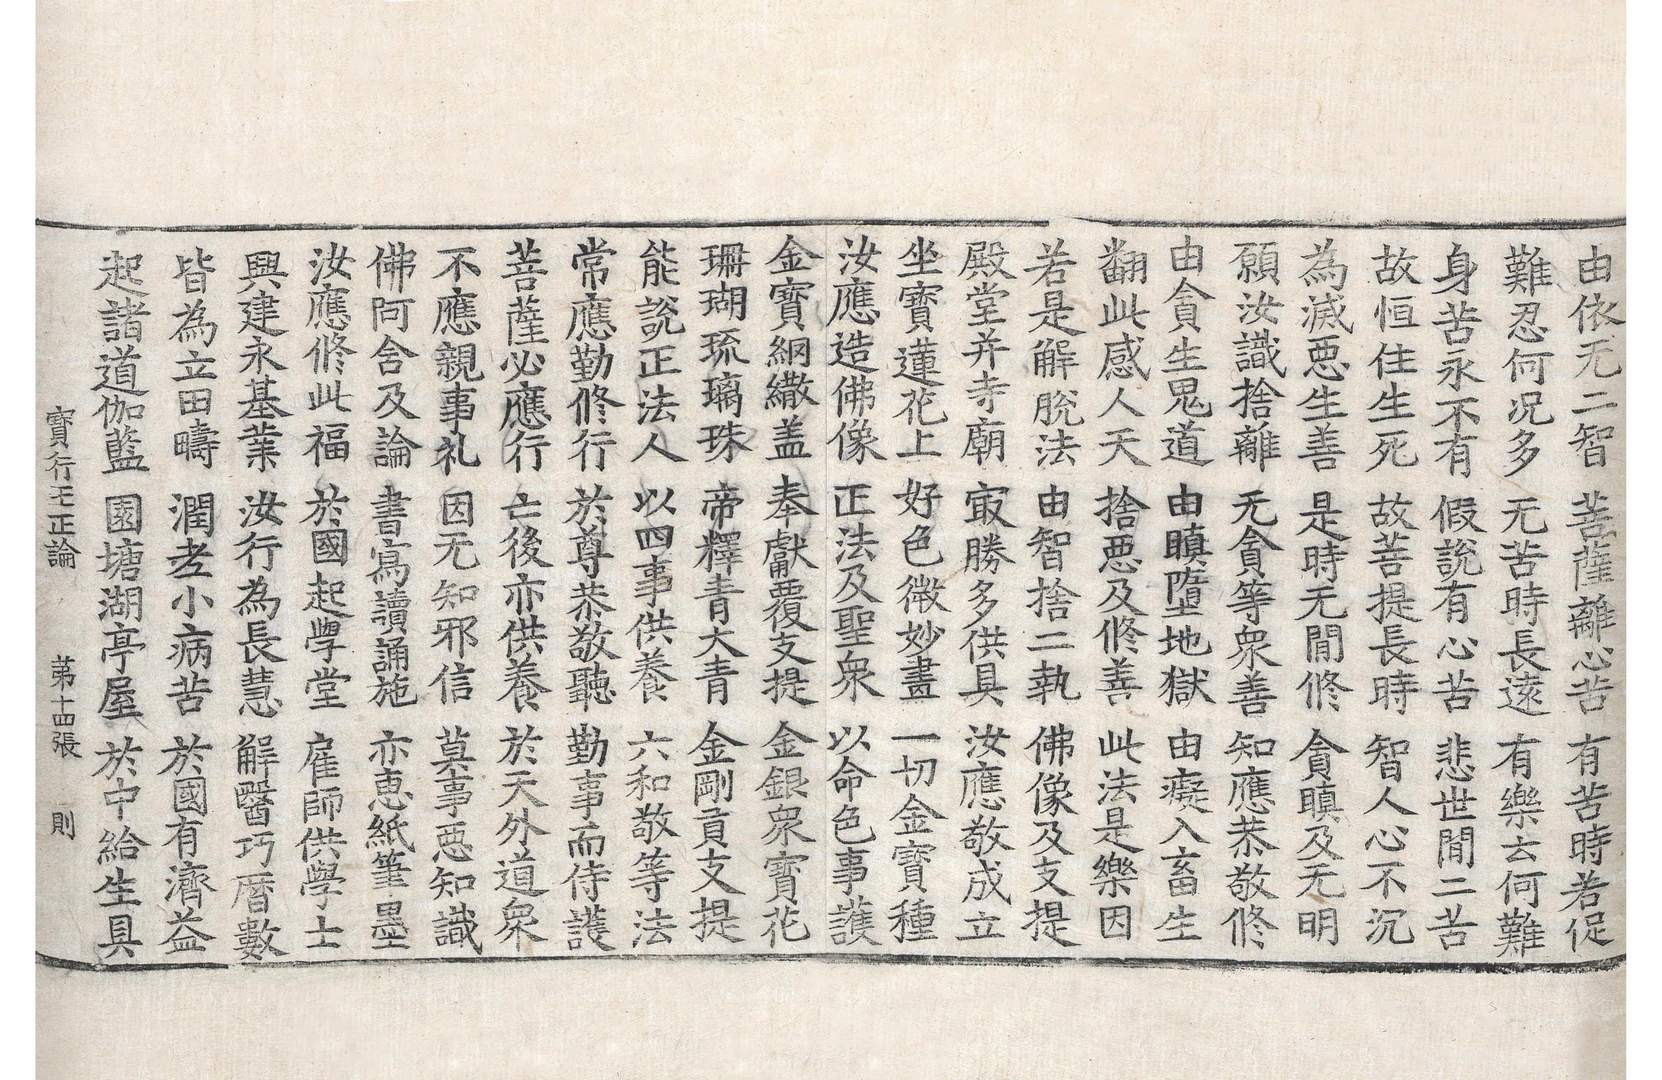 由依无二智 菩薩離心苦 有苦時若促
難忍何况多 无苦時長遠 有樂去何難
身苦永不有 假說有心苦 悲世間二苦
故恒住生死 故菩提長時 智人心不沉
為滅惡生善 是時无間修 貪瞋及无明
願汝識捨離 无貪等衆善 知應恭敬修
由貪生鬼道 由瞋墮地獄 由癡入畜生
翻此感人天 捨惡及修善 此法是樂因
若是解脫法 由智捨二執 佛像及支提
殿堂并寺廟 冣勝多供具 汝應敬成立
坐寶蓮花上 好色微妙畫 一切金寶種
汝應造佛像 正法及聖衆 以命色事護
金寶網繖盖 奉獻覆支提 金銀衆寶花
珊瑚琉璃珠 帝釋青大青 金剛貢支提
能說正法人 以四事供養 六和敬等法
常應勤修行 於尊恭敬聽 勤事而侍護
菩薩必應行 亡後亦供養 於天外道衆
不應親事礼 因无知邪信 莫事惡知識
佛阿舍及論 書寫讀誦施 亦恵紙筆墨
汝應修此福 於國起學堂 雇師供學士
興建永基業 汝行為長慧 解醫巧曆數
皆為立田疇 潤老小病苦 於國有濟益
起諸道伽藍 園塘湖亭屋 於中給生具
寶行王正論 第十四張 則